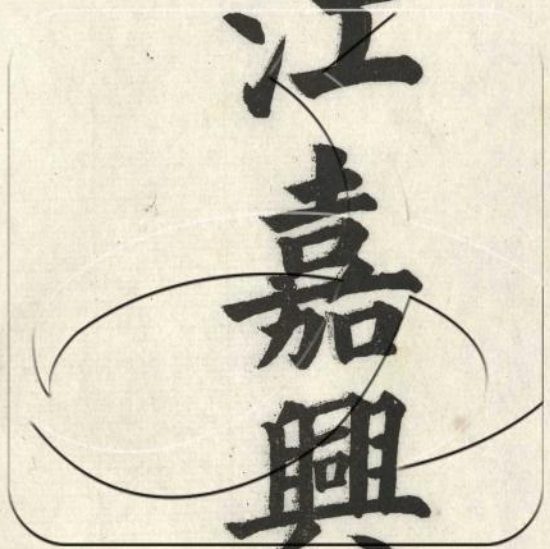 江嘉興